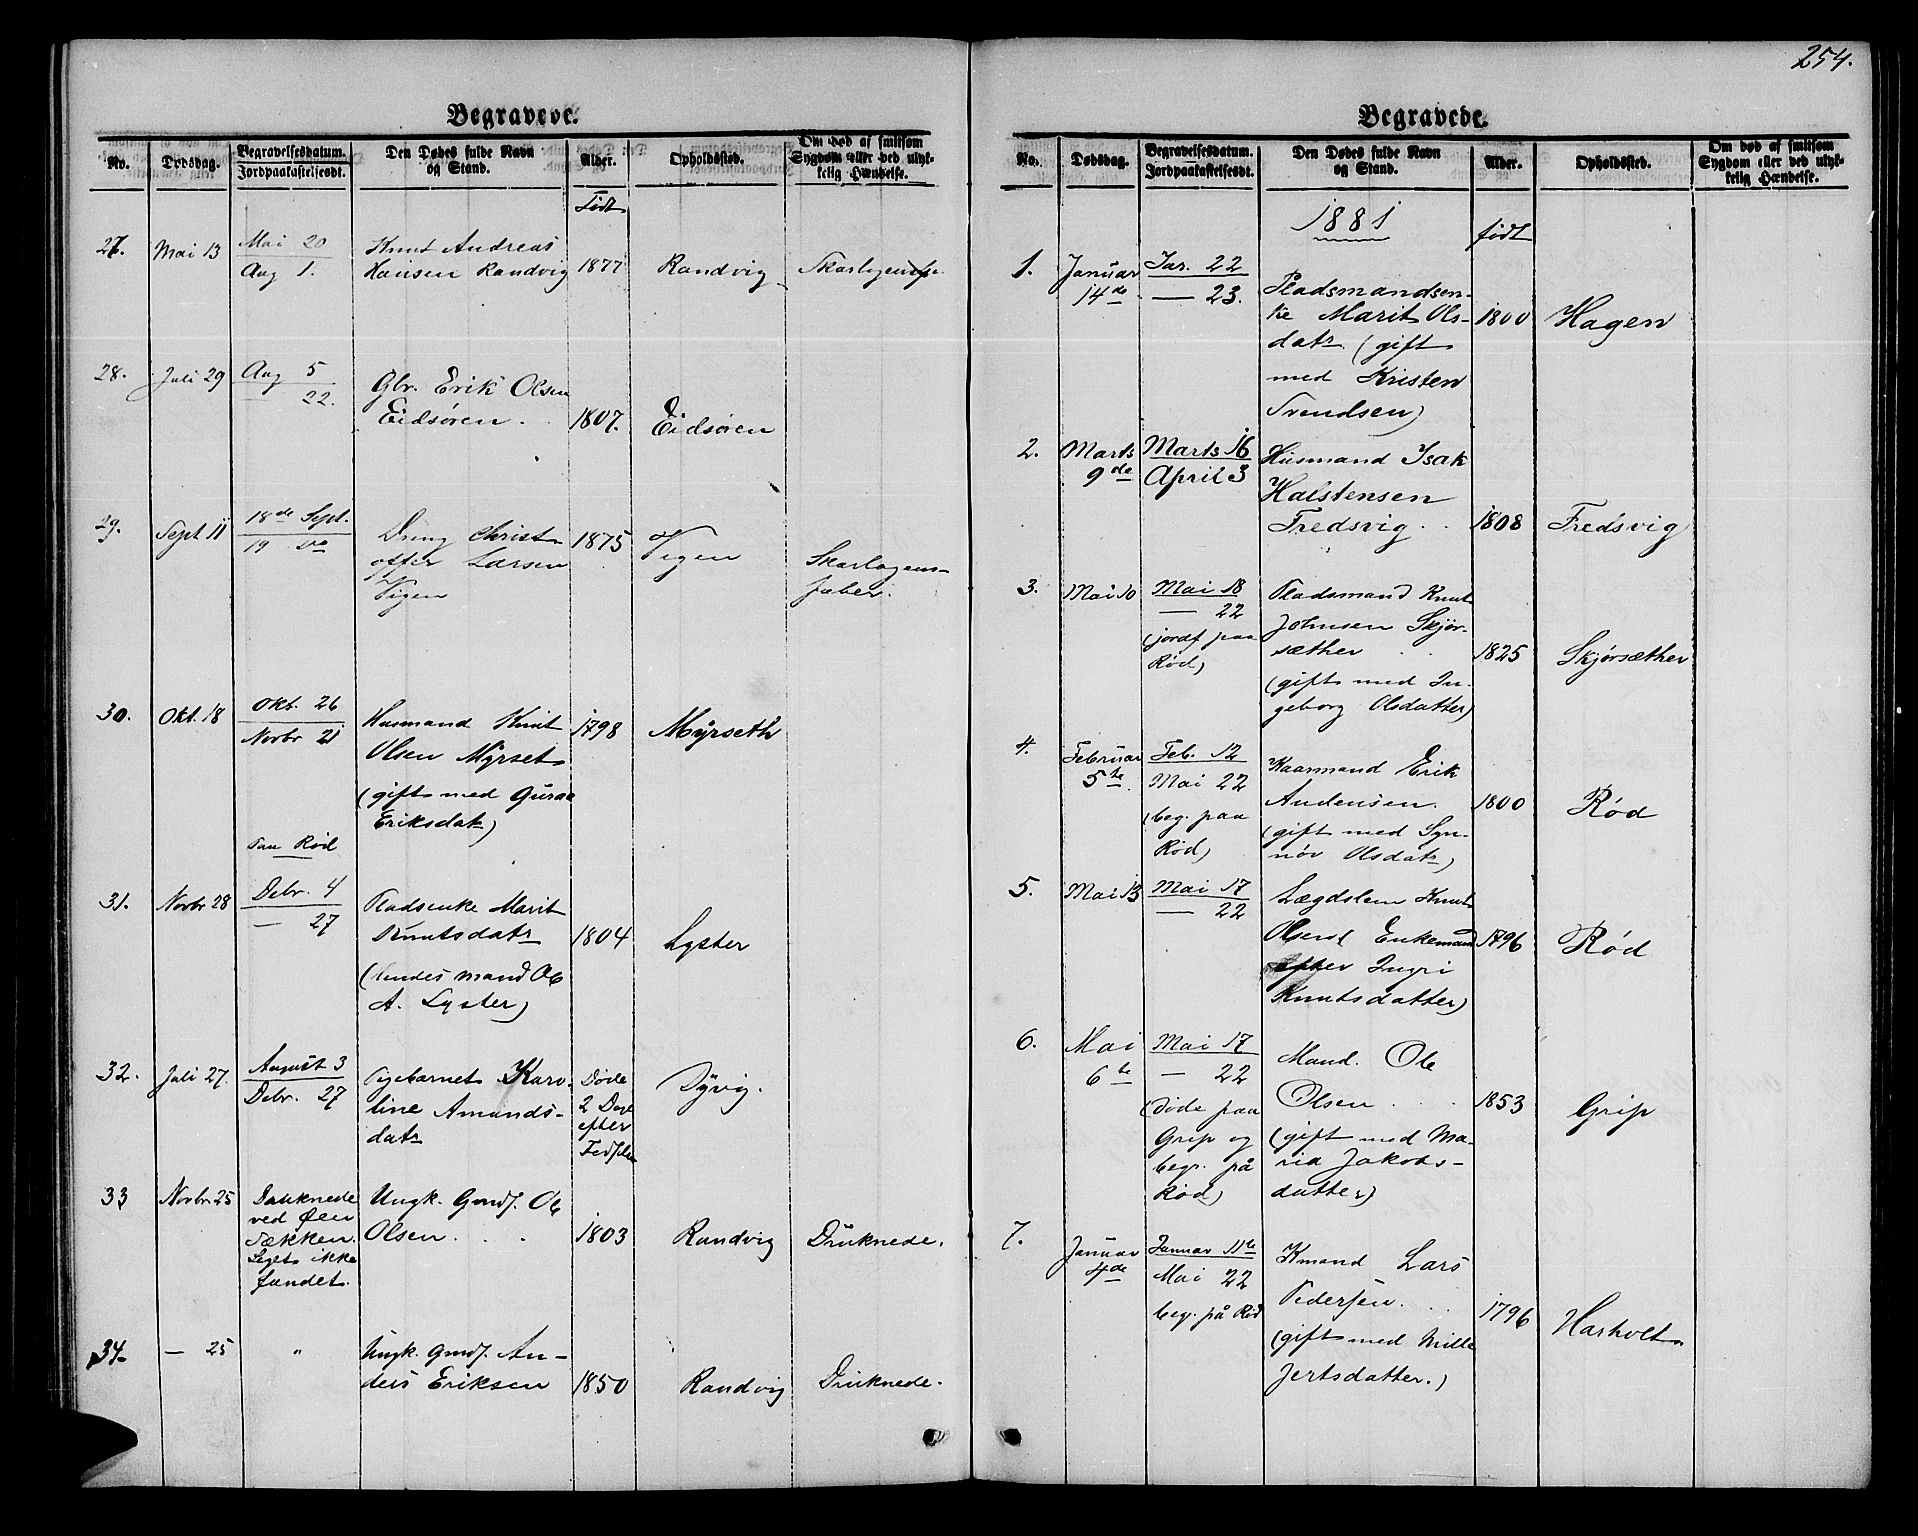 254.
Begravede.
No.
Dødsdag.
Begravelsesdatum.
Jordpaakastelsesdt.
Den Dødes fulde Navn
og Stand.
Alder.
Opholdssted.
Om død af smitsom
Sygdom eller ved ulyk-
kelig Hændelse.
Født
27. Mai 13
Mai 20
Aug 1.
Knut Andreas
Hansen Randvig
1877
Randvig
28. Juli 29
Aug 5
22.
Gbr. Erik Olsen
Eidsøren.
1807.
Eidsøren
29. Sept 11
18de Sept.
19 do
Dreng Christ
offer Larsen
Vigen
1875
Vigen
Skarlagens-
feber.
30. Okt. 18
Okt. 26
Novbr 21
Paa Rød
Husmand Knut
Olsen Myrset
(gift med Guraa
Eriksdatr)
1798
Myrseth
31. Novbr 28
Debr. 4
— 27
Pladsenke Marit
Knutsdatr
(hendes mand Ole
A. Lyster)
1804
Lyster
32. Juli 27.
August 3
Debr. 27
Pigebarnet Karo-
line Amunds-
datr
Døde
2 Dage
efter
Fødselen
Dyrvig.
33 Novbr 25
Druknede
ved Øen
Sækken.
Liget ikke
fundet.
Ungk. Gmdf. Ole
Olsen
1803
Randvig
Druknede.
34. — 25
"
Ungk. Gmdf. An-
ders Eriksen
1850
Randvig
Druknede.
Begravede.
No.
Dødsdag.
Begravelsesdatum.
Jordpaakastelsesdt.
Den Dødes fulde Navn
og Stand.
Alder.
Opholdssted.
Om død af smitsom
Sygdom eller ved ulyk-
kelig Hændelse.
1881
født
1. Januar
14de
Jar. 22
— 23.
Pladsmandsen-
ke Marit Ols-
datr (gift
med Kristen
Trondsen)
1800
Hagen
2. Marts
9de
Marts 16
April 3
Husmand Isak
Halstensen
Fredsvig
1808
Fredsvig
3. Mai 10
Mai 18
— 22
(jordf paa
Rød)
Pladsmand Knut
Johnsen Skjør-
sæther
(gift med In-
geborg Olsdatter)
1825
Skjørsæther
4. Februar
5te
Feb. 12
Mai 22
(beg. paa
Rød)
Kaarmand Erik
Andersen.
(gift med Syn-
nøv Olsdatr)
1800
Rød
5. Mai 13
Mai 17
— 22
Lægdslem Knut
Olsen Enkemand
efter Ingri
Knutsdatter)
1796
Rød
6. Mai
6te
Mai 17
— 22
(døde paa
Grip og
begr. på
Rød)
Mand. Ole
Olsen
(gift med Ma-
ria Jakobs-
datter)
1853
Grip
7. Januar
4de
Januar 11te
Mai 22
beg. på Rød
Kmand Lars
Pedersen.
(gift med Mille
Jertsdatter.)
1796
Harholt